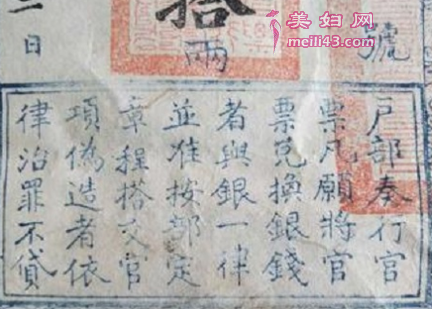 美妇网
meili43.com
號
拾兩
日
户部奏行官
票凡願將官
票兑換銀錢
者與銀一律
並准按部定
章程搭交官
項偽造者依
律治罪不貸